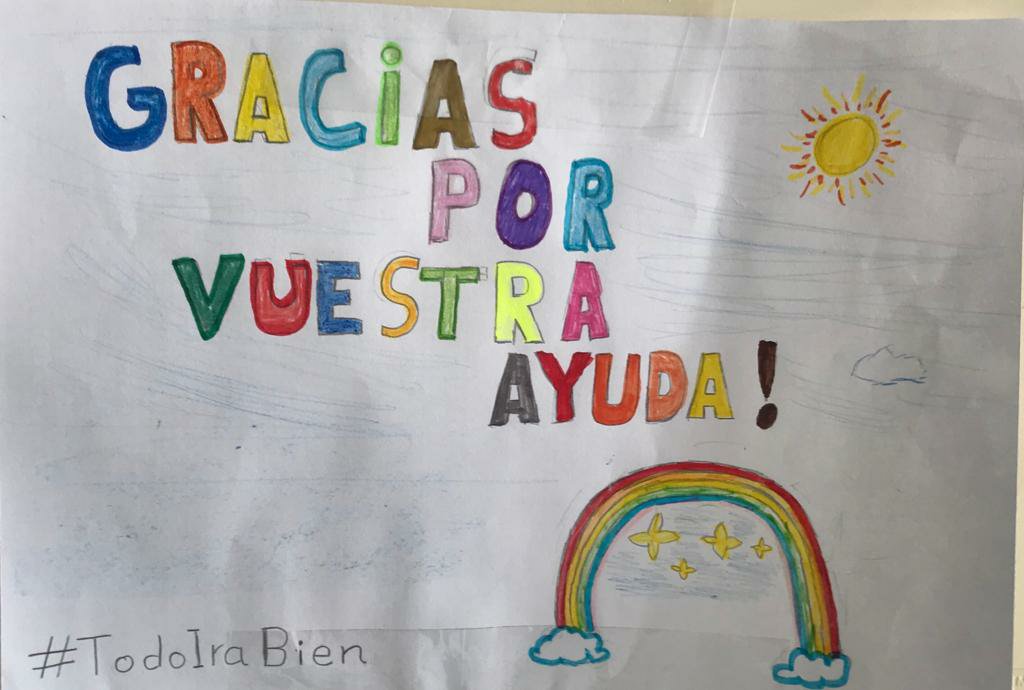 GRACiAS
POR
VUESTRA
AYUDA!
#TodoIra Bien